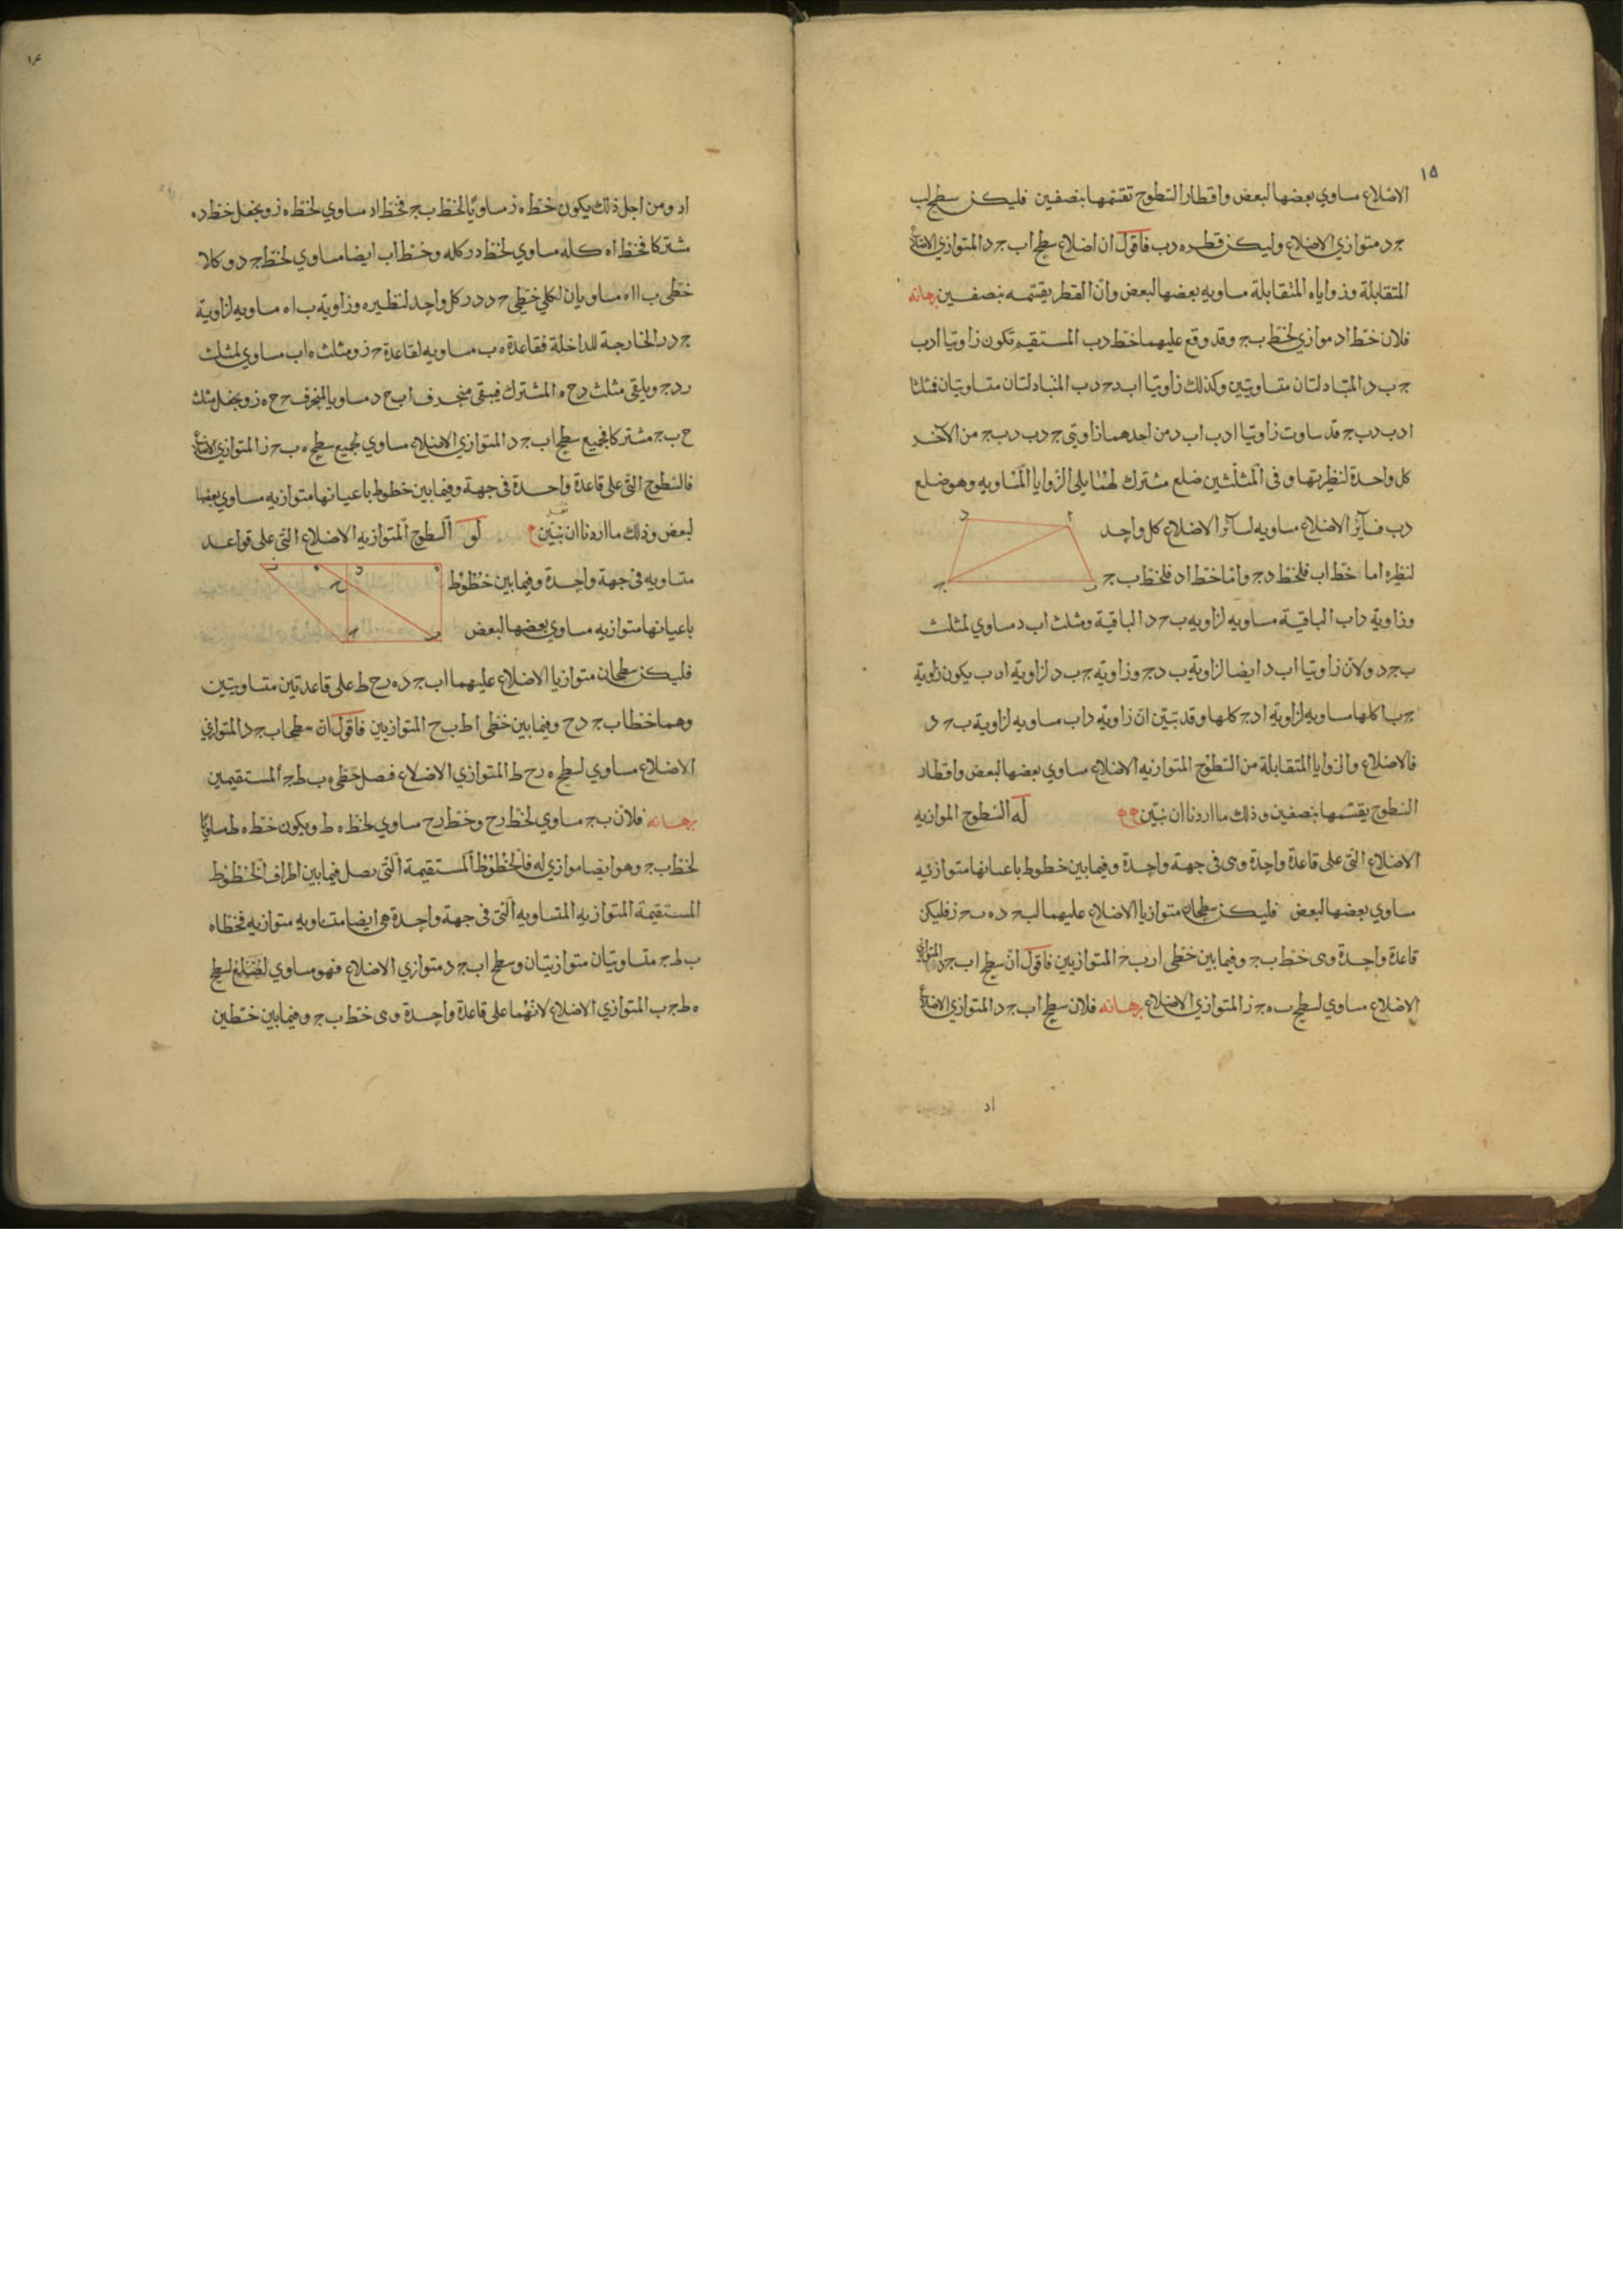 ١٥
الاضلاع ساوي بعضها لبعض واقطار السطوح تقسمها بنصفين فليكن سطح اب
جـ د متوازي الاضلاع وليكن قطره د ب فاقول ان اضلاع سطح اب جـ د المتوازي الاضلاع
المتقابلة وزواياه المتقابلة مساويه بعضها لبعض وان القطر يقسمه بنصفين برهانه
فلان خط اد موازي لخط ب جـ وقد وقع عليهما خط د ب المستقيم تكون زاويتا ا د ب
جـ ب د المتبادلتان متساويتين وكذلك زاويتا اب د جـ د ب المتبادلتان متساويتان فمثلثا
ا د ب د ب جـ قد ساوت زاويتا ا د ب اب د من احدهما زاويتي جـ د ب د ب جـ من الآخر
كل واحدة لنظيرتها وفى المثلثين ضلع مشترك لهما يلى الزوايا المتساويه وهو ضلع
د ب فسائر الاضلاع مساويه لسائر الاضلاع كل واحد
ا د
لنظيره اما خط اب فلخط د جـ واما خط اد فلخط ب جـ
ب جـ
وزاوية د اب الباقية مساويه لزاويه ب جـ د الباقية ومثلث اب د مساوي لمثلث
ب جـ د ولان زاويتا اب د ايضا لزاوية ب د جـ وزاويه جـ ب د لزاوية ا د ب يكون زاوية
جـ ب ا كلها مساويه لزاوية ا د جـ كلها وقد تبين ان زاوية د اب مساويه لزاوية ب جـ د
فالاضلاع والزوايا المتقابلة من السطوح المتوازيه الاضلاع مساوي بعضها لبعض واقطار
السطوح يقسمها بنصفين وذلك ما اردنا ان نبين له السطوح الموازيه
الاضلاع التى على قاعدة واحدة وهى فى جهة واحدة وفيما بين خطوط باعيانها متوازيه
ساوي بعضها لبعض فليكن سطحان متوازيا الاضلاع عليهما اب جـ د ه ب جـ ز فليكن
قاعدة واحدة وهى خط ب جـ وفيما بين خطى ا ز ب جـ المتوازيين فاقول ان سطح اب جـ د المتوازي
الاضلاع مساوي لسطح ب ه جـ ز المتوازي الاضلاع برهانه فلان سطح اب جـ د المتوازي الاضلاع
اد
١٦
اد ومن اجل ذلك يكون خط ه ز مساويًا لخط ب جـ فخط اد مساوي لخط ه ز ونجعل خط د ه
مشتركا فخط اه كله مساوي لخط د ز كله وخط اب ايضا مساوي لخط جـ د وكلا
خطى ب ا اه مساويان لكلى خطى جـ د د ز كل واحد لنظيره وزاوية ب اه مساويه لزاوية
جـ د ز الخارجة للداخلة فقاعدة ه ب مساويه لقاعدة جـ ز ومثلث ه اب مساوي لمثلث
ز د جـ ويلقى مثلث د ح ه المشترك فيبقى منحرف اب ح د مساويا لمنحرف جـ ح ه ز ونجعل مثلث
ح ب جـ مشتركا فجميع سطح اب جـ د المتوازي الاضلاع مساوي لجميع سطح ه ب جـ ز المتوازي الاضلاع
فالسطوح التى على قاعدة واحدة فى جهة وفيما بين خطوط باعيانها متوازيه مساوي بعضها
لبعض وذلك ما اردنا ان نبين لو السطوح المتوازيه الاضلاع التى على قواعد
متساويه فى جهة واحدة وفيما بين خطوط
باعيانها متوازيه مساوي بعضها لبعض
فليكن سطحان متوازيا الاضلاع عليهما اب جـ د ه ز ح ط على قاعدتين متساويتين
وهما خطا ب جـ ز ح وفيما بين خطى ا ط ب ح المتوازيين فاقول ان سطح اب جـ د المتوازي
الاضلاع مساوي لسطح ه ز ح ط المتوازي الاضلاع فنصل خطى ه ب ط جـ المستقيمين
برهانه فلان ب جـ مساوي لخط ز ح وخط ز ح مساوي لخط ه ط ويكون خط ه ط مساويًا
لخط ب جـ وهو ايضا موازي له فالخطوط المستقيمة التى يصل فيما بين اطراف الخطوط
المستقيمة المتوازيه المتساويه التى فى جهة واحدة هى ايضا متساويه متوازيه فخطا ه
ب ط جـ متساويتان متوازيتان وسطح اب جـ د متوازي الاضلاع فهو مساوي لسطح
ه ط جـ ب المتوازي الاضلاع لانهما على قاعدة واحدة وهى خط ب جـ وفيما بين خطين